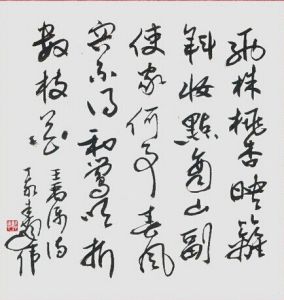 两株桃杏映籬
斜妝點商山副
使家何事春風
容不得和鶯吹折
數枝花
王禹偁詩